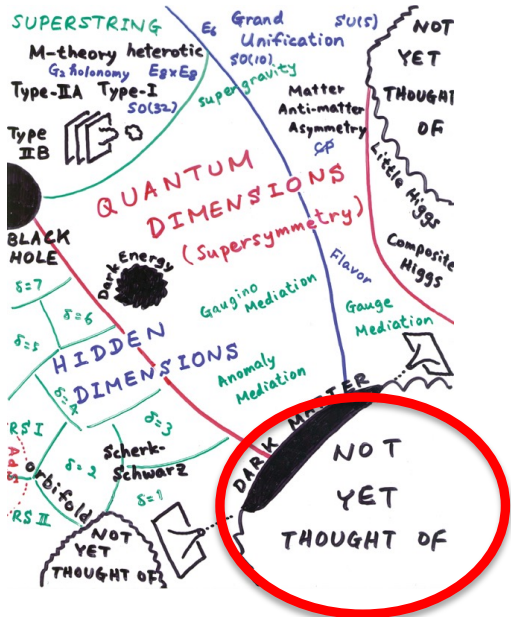 SUPERSTRING
M-theory heterotic
G2 holonomy E8xE8
Type-IIA Type-I
SO(32)
Type
IIB
E6 Grand
Unification
SU(5)
SO(10)
supergravity
Matter
Anti-matter
Asymmetry
CP
NOT
YET
THOUGHT
OF
Little Higgs
Composite
Higgs
QUANTUM
DIMENSIONS
(Supersymmetry)
BLACK
HOLE
Dark Energy
Flavor
Gaugino
Mediation
Gauge
Mediation
Anomaly
Mediation
δ=7
δ=6
δ=5
HIDDEN
DIMENSIONS
δ=4
δ=3
RS I
AdS
orbifold
δ=2
Scherk-
Schwarz
δ=1
RS II
NOT
YET
THOUGHT OF
DARK MATTER
NOT
YET
THOUGHT OF